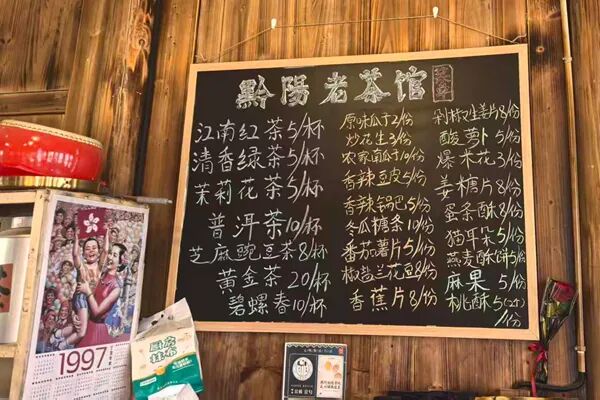 黔陽老茶馆
江南红茶5/杯
清香绿茶5/杯
茉莉花茶5/杯
普洱茶10/杯
芝麻豌豆茶8/杯
黄金茶20/杯
碧螺春10/杯
原味瓜子2/份
炒花生3/份
农家南瓜子10/份
香辣豆皮5/份
香辣锅巴5/份
冬瓜糖条10/份
番茄薯片5/份
椒盐兰花豆8/份
香蕉片8/份
剁椒生姜片8/份
酸萝卜5/份
爆米花3/份
姜糖片8/份
蛋条酥8/份
猫耳朵5/份
燕麦酥饼5/份
麻果5/份
桃酥5(2个)
/份
1997
厨房
抹布